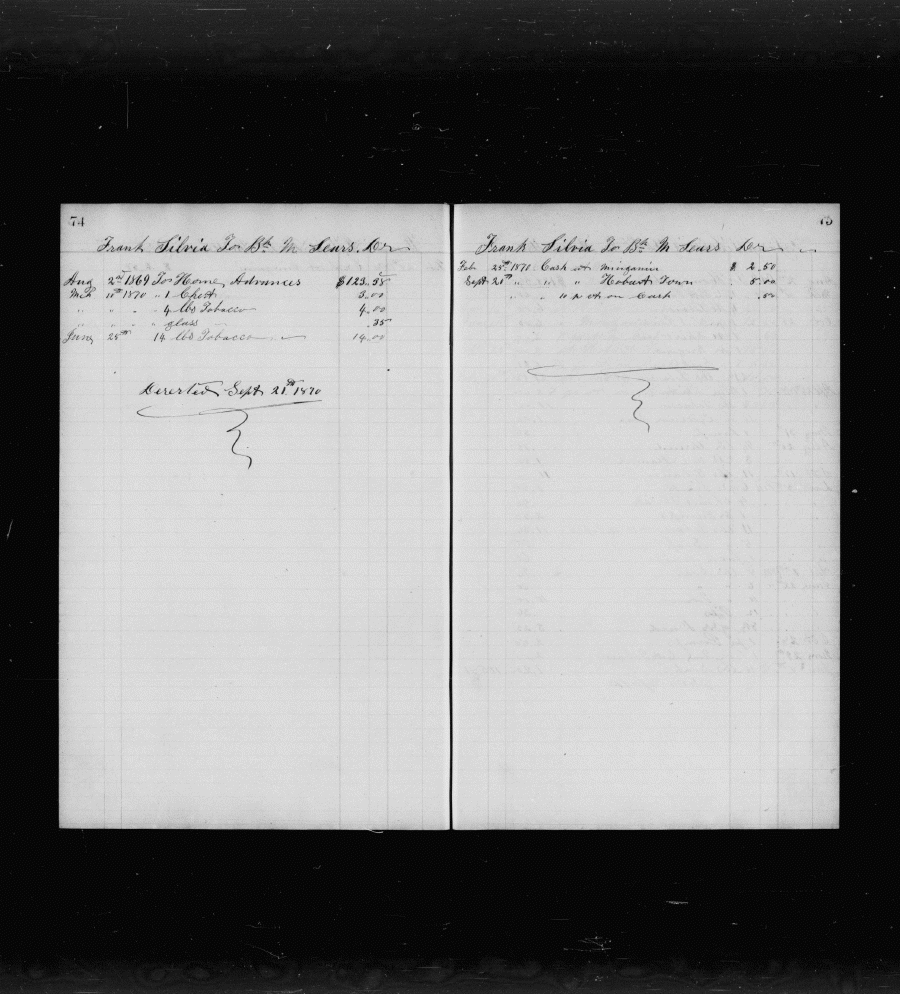 74
Frank Silvia To Bk M Sears Dr
Aug 2nd 1869 To Home Advances $123.38
Mch 10th 1870 " 1 Chest 3.00
" " " " 4 lbs Tobacco 4.00
" " " " glass .35
June 25th 14 lbs Tobacco 14.00
Deserted Sept 21st 1870
75
Frank Silvia To Bk M Sears Dr
Feb 25th 1870 Cash at $ 2.50
Sept 21st " " " Hobart Town 5.00
" " 10 p ct on Cash .50